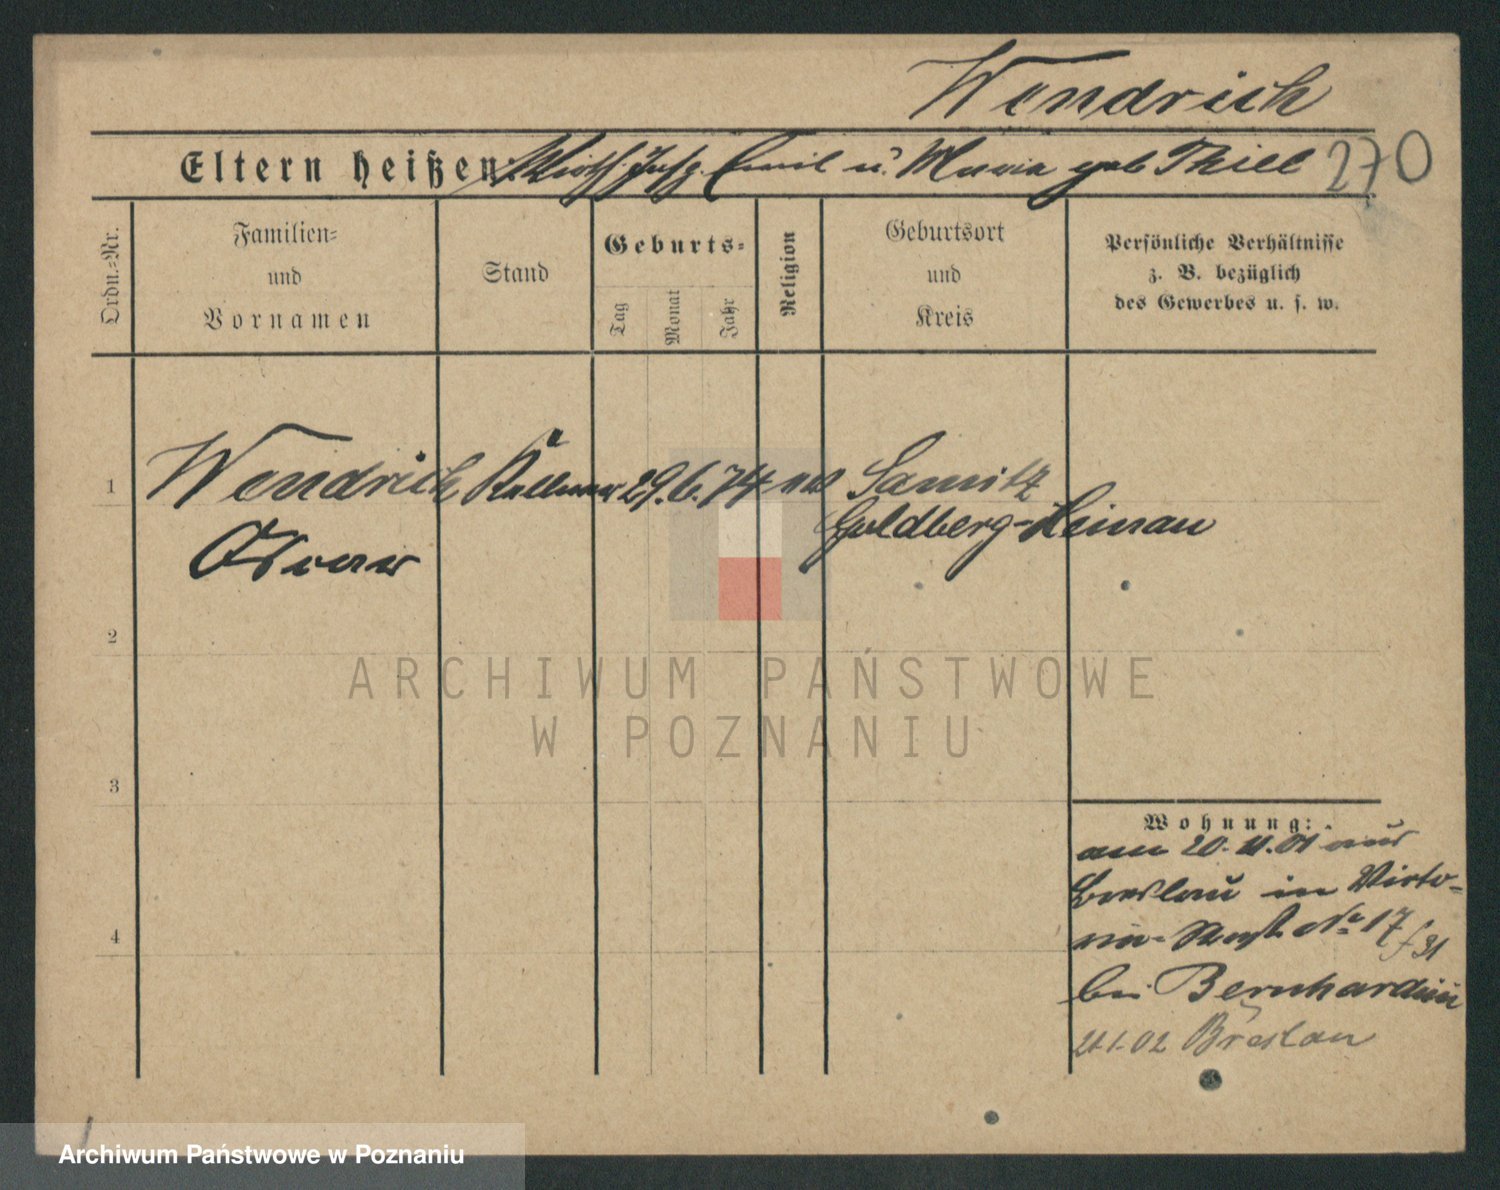 Wendrich
Eltern heißen: Wirtsch. Insp. Emil u. Maria geb Thiel 270
Ordn.-Nr.
Familien-
und
Vornamen
Stand
Geburts-
Tag
Monat
Jahr
Religion
Geburtsort
und
Kreis
Persönliche Verhältnisse
z. B. bezüglich
des Gewerbes u. s. w.
1 Wendrich Kellner 29. 6. 74 ev Samitz
Goldberg-Heinau
Oscar
2
3
4
Wohnung:
am 20. 11. 01 aus
Breslau in Victo-
ria- No 17
bei Bernhardin
21.1.02 Breslau
ARCHIWUM PAŃSTWOWE
W POZNANIU
Archiwum Państwowe w Poznaniu